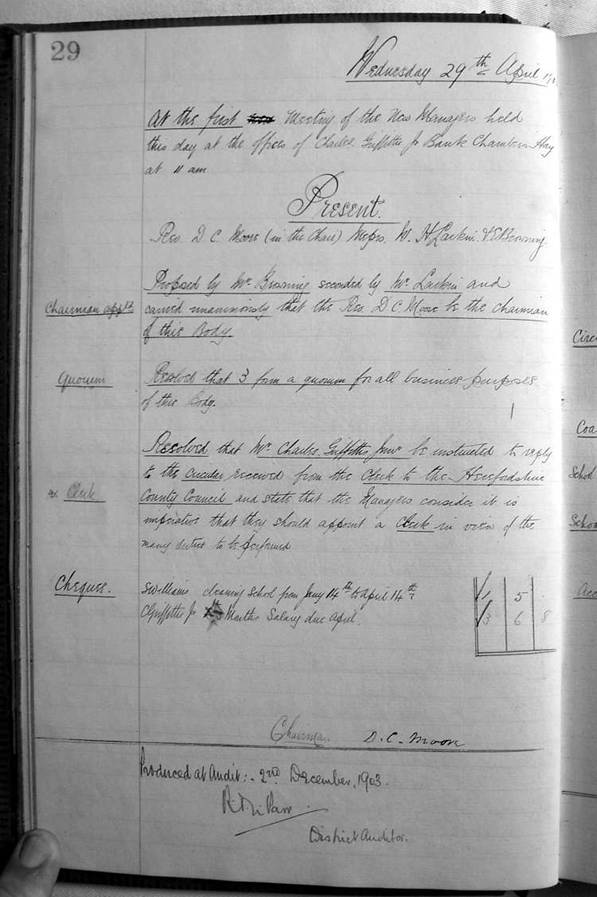 29
Wednesday 29th April
At the first Meeting of the New Managers held
this day at the offices of Charles Griffiths Jr Bank Chambers Hay
at 11 am
Present.
Rev. D. C. Moore (in the Chair) Messrs. W. H. Larkin & E Browning
Proposed by Mr. Browning seconded by Mr. Larkin and
Chairman apptd.
carried unanimously that the Rev. D C Moore be the chairman
of this Body.
Quorum
Resolved that 3 form a quorum for all business purposes
of this Body.
Resolved that Mr. Charles Griffiths Junr be instructed to reply
to the circular received from the Clerk to the Herefordshire
re Clerk
County Council and state that the Managers consider it is
imperative that they should appoint a Clerk in view of the
many duties to be performed
Cheques.
S Williams cleaning School from Jany 14th to April 14th 1 5
C Griffiths Jr Months Salary due April. 3 6 8
Chairman D. C. Moore
Produced at Audit:- 2nd December, 1903.
District Auditor.
Circ
Coa
School
Schoo
Acc